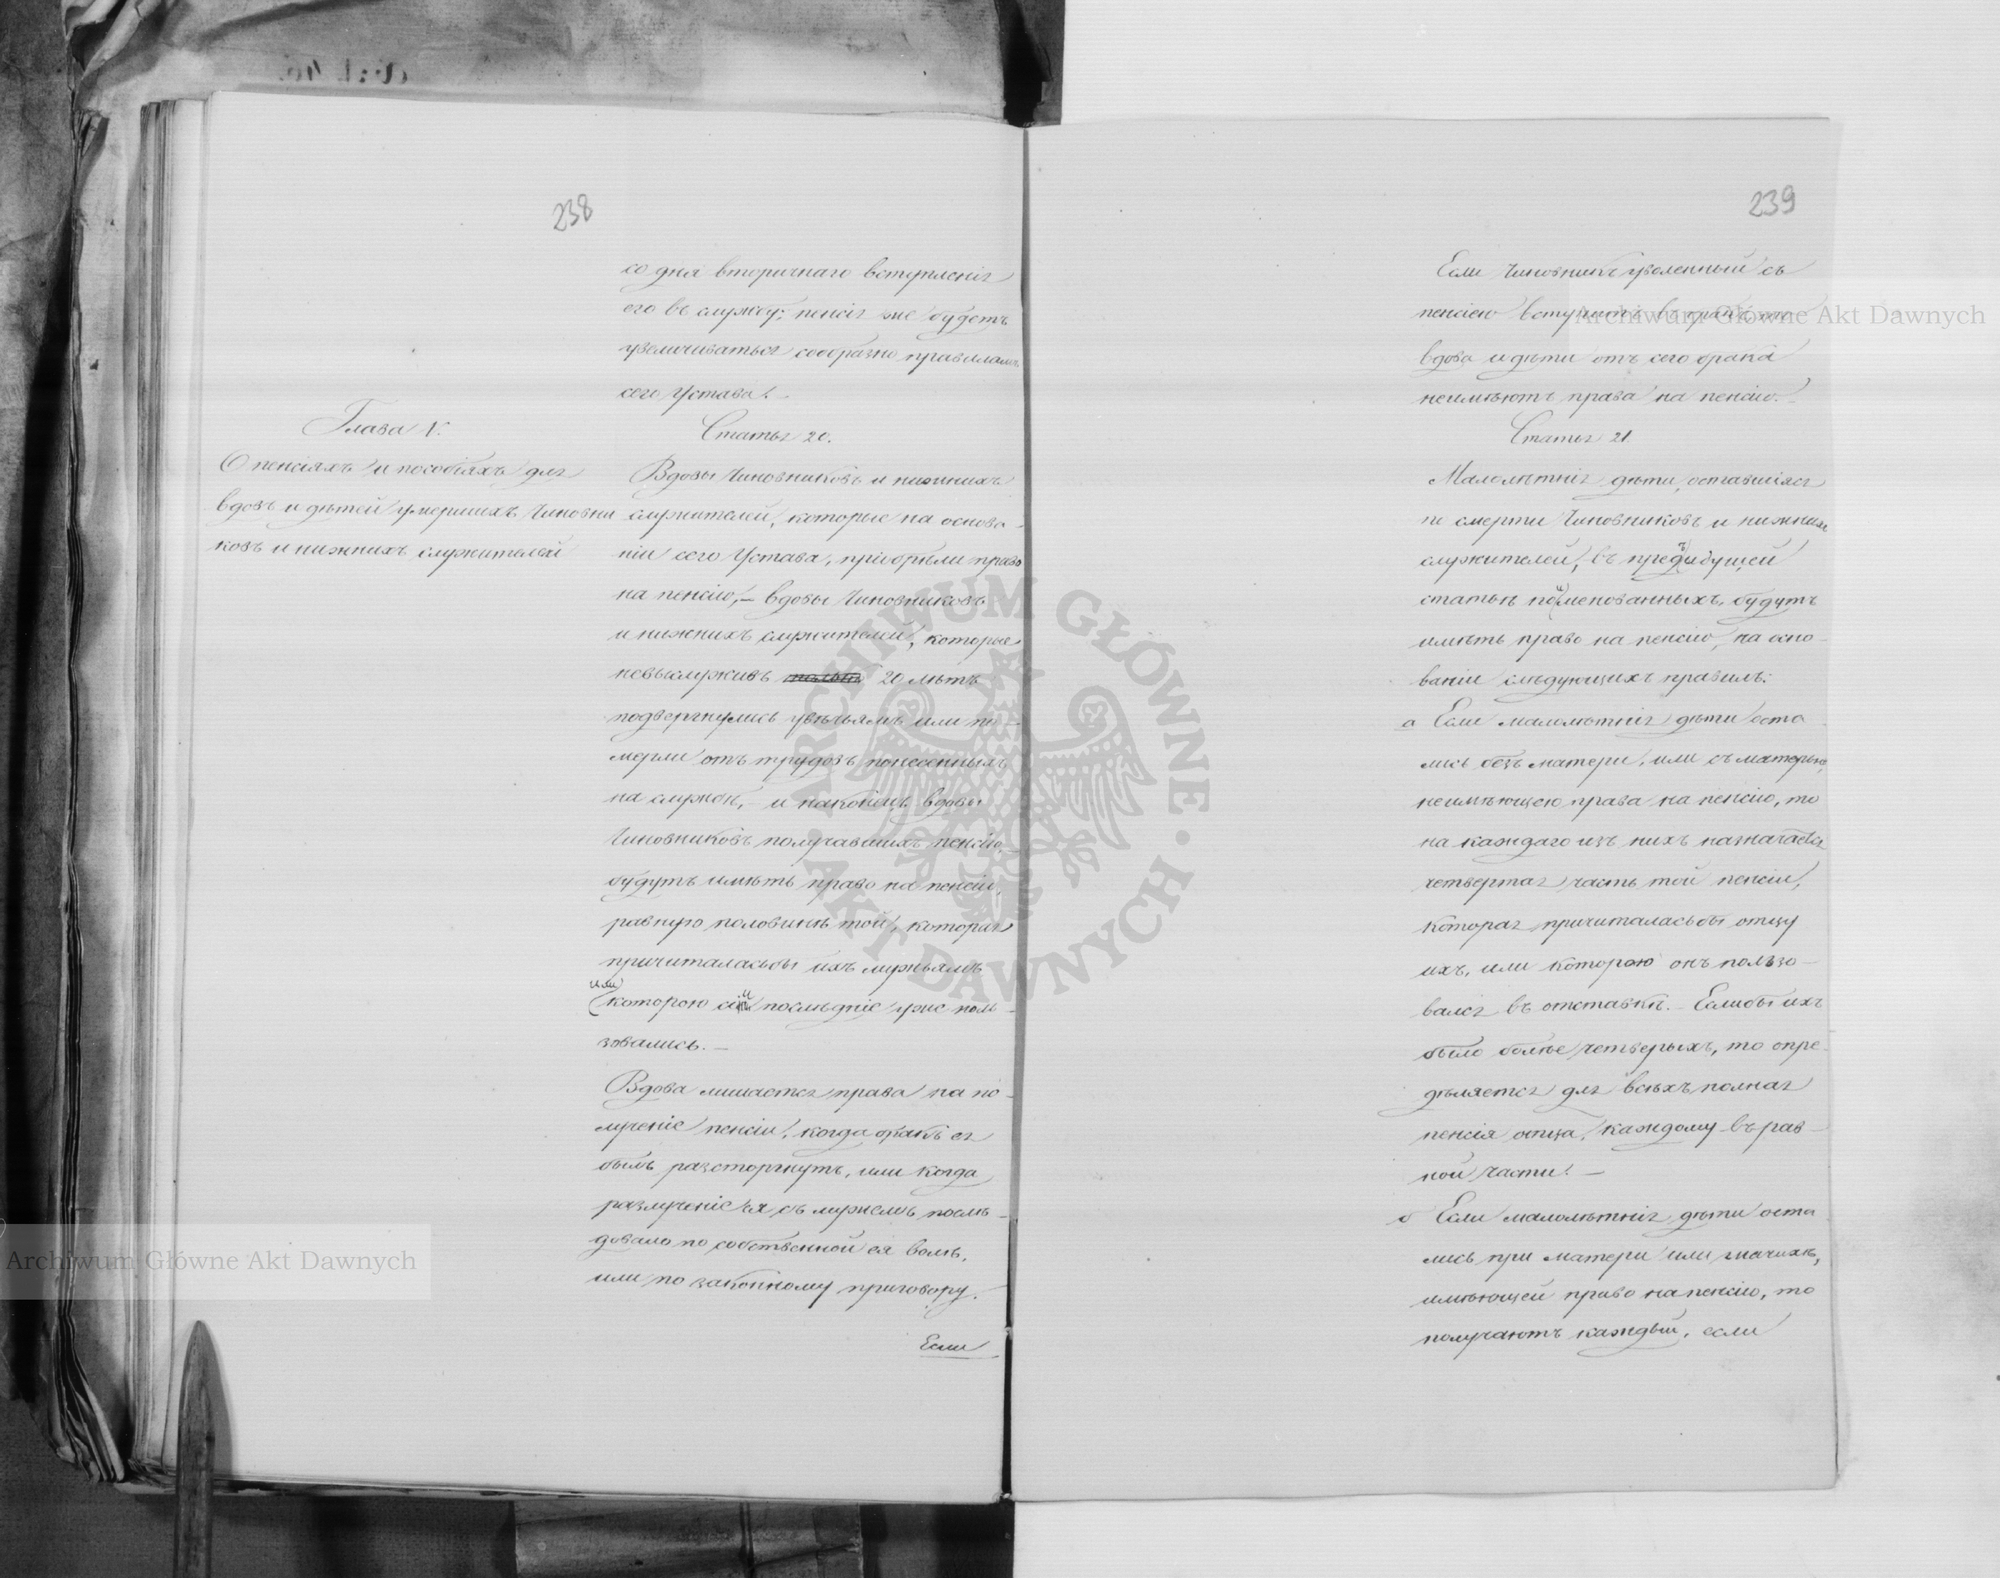 238
со дня вторичнаго вступленія
его въ службу; пенсія же будетъ
увеличиваться сообразно правиламъ
сего Устава.
Глава V.
О пенсіяхъ и пособіяхъ для
вдовъ и дѣтей умершихъ Чиновни
ковъ и нижнихъ служителей
Статья 20.
Вдовы Чиновниковъ и нижнихъ
служителей, которые на основа-
ніи сего Устава, пріобрѣли право
на пенсію, – вдовы Чиновниковъ
и нижнихъ служителей, которые
невыслуживъ 20 лѣтъ
подвергнулись увѣчьямъ или по-
мерли отъ трудовъ понесенныхъ
на службѣ, – и наконецъ вдовы
Чиновниковъ получавшихъ пенсію,
будутъ имѣть право на пенсію,
равную половинѣ той, которая
причиталасьбы ихъ мужьямъ
или
которою сіи послѣдніе уже поль-
зовались. –
Вдова лишается права на по-
лученіе пенсіи, когда бракъ ея
былъ расторгнутъ, или когда
разлученіе ея съ мужемъ послѣ-
довало по собственной ея волѣ,
или по законному приговору.
Если
239
Если Чиновникъ уволенный съ
пенсіею вступитъ въ бракъ, то
вдова и дѣти отъ сего брака
неимѣютъ права на пенсію. –
Статья 21.
Малолѣтнія дѣти, оставшіяся
по смерти Чиновниковъ и нижнихъ
служителей, въ предъидущей
статьѣ поименованныхъ, будутъ
имѣть право на пенсію, на осно-
ваніи слѣдующихъ правилъ:
а Если малолѣтнія дѣти оста
лись безъ матери, или съ матерью,
неимѣющею права на пенсію, то
на каждаго изъ нихъ назначается
четвертая часть той пенсіи,
которая причиталасьбы отцу
ихъ, или которою онъ пользо-
вался въ отставкѣ. – Еслибы ихъ
было болѣе четверыхъ, то опре-
дѣляется для всѣхъ полная
пенсія отца, каждому въ рав-
ной части. –
б Если малолѣтнія дѣти оста
лись при матери или мачихѣ,
имѣющей право на пенсію, то
получаютъ каждый, если
Archiwum Główne Akt Dawnych
Archiwum Główne Akt Dawnych
ARCHIWUM GŁÓWNE · AKT DAWNYCH ·